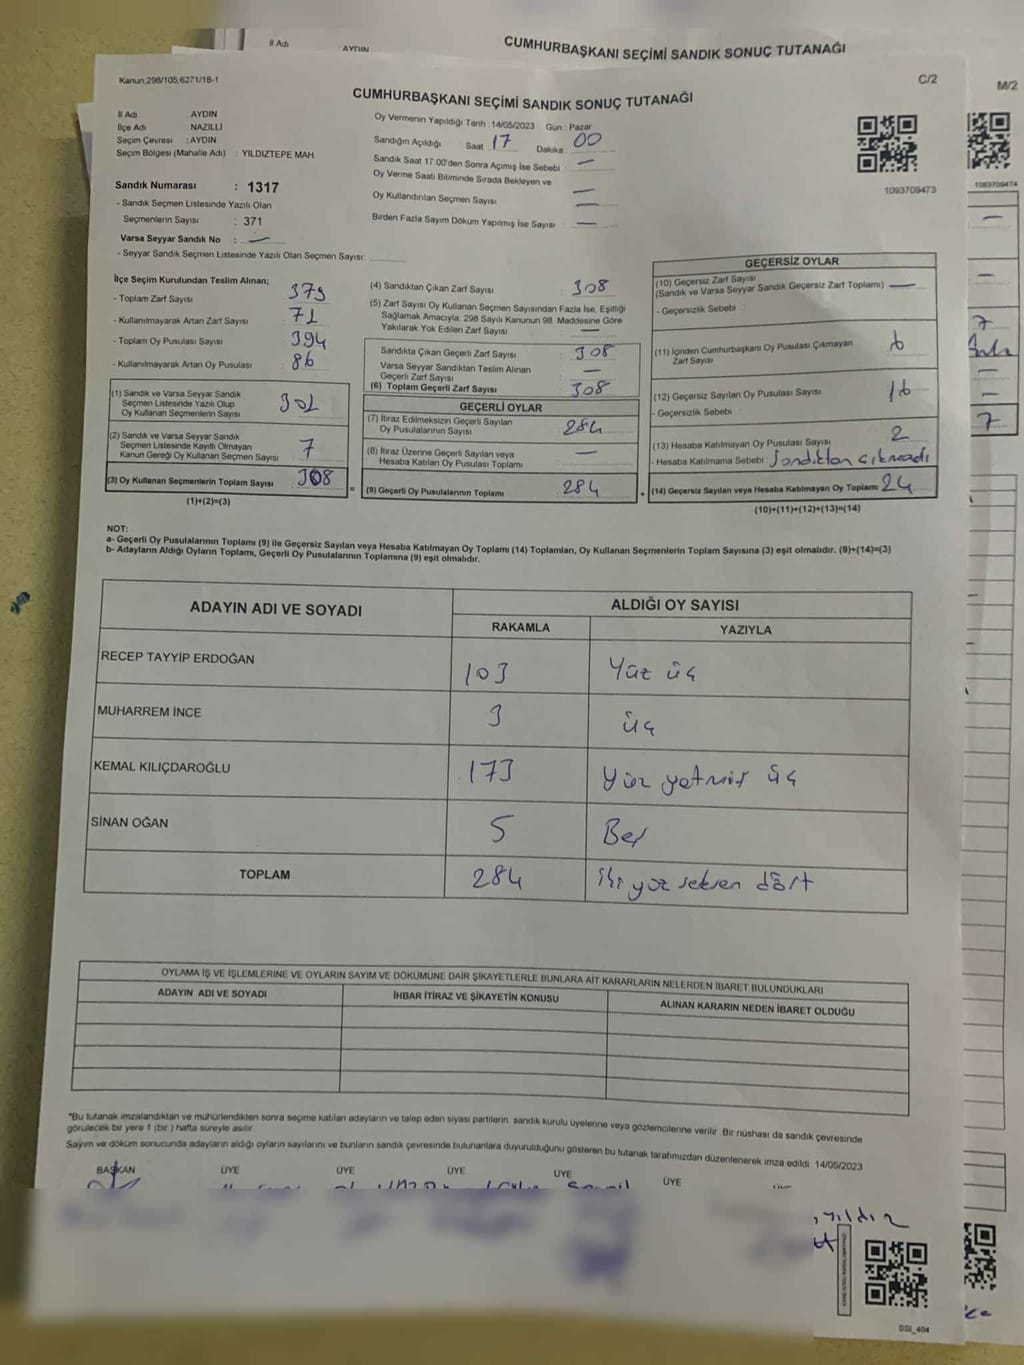 İl Adı AYDIN CUMHURBAŞKANI SEÇİMİ SANDIK SONUÇ TUTANAĞI
M/2
1093709474
Kanun:298/105,6271/18-1
C/2
CUMHURBAŞKANI SEÇİMİ SANDIK SONUÇ TUTANAĞI
1093709473
İl Adı AYDIN
İlçe Adı NAZİLLİ
Seçim Çevresi : AYDIN
Seçim Bölgesi (Mahalle Adı) : YILDIZTEPE MAH
Sandık Numarası : 1317
- Sandık Seçmen Listesinde Yazılı Olan
Seçmenlerin Sayısı : 371
Varsa Seyyar Sandık No : —
- Seyyar Sandık Seçmen Listesinde Yazılı Olan Seçmen Sayısı:
Oy Vermenin Yapıldığı Tarih : 14/05/2023 Gün : Pazar
Sandığın Açıldığı Saat : 17 Dakika 00
Sandık Saat 17:00'den Sonra Açımış İse Sebebi : —
Oy Verme Saati Bitiminde Sırada Bekleyen ve —
Oy Kullandırılan Seçmen Sayısı —
Birden Fazla Sayım Döküm Yapılmış İse Sayısı : —
İlçe Seçim Kurulundan Teslim Alınan;
- Toplam Zarf Sayısı : 379
- Kullanılmayarak Artan Zarf Sayısı : 71
- Toplam Oy Pusulası Sayısı : 394
- Kullanılmayarak Artan Oy Pusulası : 86
(1) Sandık ve Varsa Seyyar Sandık
Seçmen Listesinde Yazılı Olup
Oy Kullanan Seçmenlerin Sayısı : 301
(2) Sandık ve Varsa Seyyar Sandık
Seçmen Listesinde Kayıtlı Olmayan
Kanun Gereği Oy Kullanan Seçmen Sayısı : 7
(3) Oy Kullanan Seçmenlerin Toplam Sayısı 308
(1)+(2)=(3)
=
(4) Sandıktan Çıkan Zarf Sayısı : 308
(5) Zarf Sayısı Oy Kullanan Seçmen Sayısından Fazla İse, Eşitliği
Sağlamak Amacıyla, 298 Sayılı Kanunun 98. Maddesine Göre
Yakılarak Yok Edilen Zarf Sayısı : —
Sandıkta Çıkan Geçerli Zarf Sayısı : 308
Varsa Seyyar Sandıktan Teslim Alınan
Geçerli Zarf Sayısı : —
(6) Toplam Geçerli Zarf Sayısı : 308
GEÇERLİ OYLAR
(7) İtiraz Edilmeksizin Geçerli Sayılan
Oy Pusulalarının Sayısı : 284
(8) İtiraz Üzerine Geçerli Sayılan veya
Hesaba Katılan Oy Pusulası Toplamı : —
(9) Geçerli Oy Pusulalarının Toplamı : 284
+
GEÇERSİZ OYLAR
(10) Geçersiz Zarf Sayısı
(Sandık ve Varsa Seyyar Sandık Geçersiz Zarf Toplamı) : —
- Geçersizlik Sebebi :
(11) İçinden Cumhurbaşkanı Oy Pusulası Çıkmayan
Zarf Sayısı : 6
(12) Geçersiz Sayılan Oy Pusulası Sayısı : 16
- Geçersizlik Sebebi :
(13) Hesaba Katılmayan Oy Pusulası Sayısı : 2
- Hesaba Katılmama Sebebi : Sandıktan çıkmadı
(14) Geçersiz Sayılan veya Hesaba Katılmayan Oy Toplamı: 24
(10)+(11)+(12)+(13)=(14)
NOT:
a- Geçerli Oy Pusulalarının Toplamı (9) ile Geçersiz Sayılan veya Hesaba Katılmayan Oy Toplamı (14) Toplamları, Oy Kullanan Seçmenlerin Toplam Sayısına (3) eşit olmalıdır. (9)+(14)=(3)
b- Adayların Aldığı Oyların Toplamı, Geçerli Oy Pusulalarının Toplamına (9) eşit olmalıdır.
ADAYIN ADI VE SOYADI ALDIĞI OY SAYISI
RAKAMLA YAZIYLA
RECEP TAYYİP ERDOĞAN 103 Yüz üç
MUHARREM İNCE 3 üç
KEMAL KILIÇDAROĞLU 173 Yüz yetmiş üç
SİNAN OĞAN 5 Beş
TOPLAM 284 iki yüz seksen dört
OYLAMA İŞ VE İŞLEMLERİNE VE OYLARIN SAYIM VE DÖKÜMÜNE DAİR ŞİKAYETLERLE BUNLARA AİT KARARLARIN NELERDEN İBARET BULUNDUKLARI
ADAYIN ADI VE SOYADI İHBAR İTİRAZ VE ŞİKAYETİN KONUSU ALINAN KARARIN NEDEN İBARET OLDUĞU
*Bu tutanak imzalandıktan ve mühürlendikten sonra seçime katılan adayların ve talep eden siyasi partilerin sandık kurulu üyelerine veya gözlemcilerine verilir. Bir nüshası da sandık çevresinde
görülecek bir yere 1 (bir ) hafta süreyle asılır.
Sayım ve döküm sonucunda adayların aldığı oyların sayılarını ve bunların sandık çevresinde bulunanlara duyurulduğunu gösteren bu tutanak tarafımızdan düzenlenerek imza edildi. 14/05/2023
BAŞKAN ÜYE ÜYE ÜYE ÜYE ÜYE
SSI_404